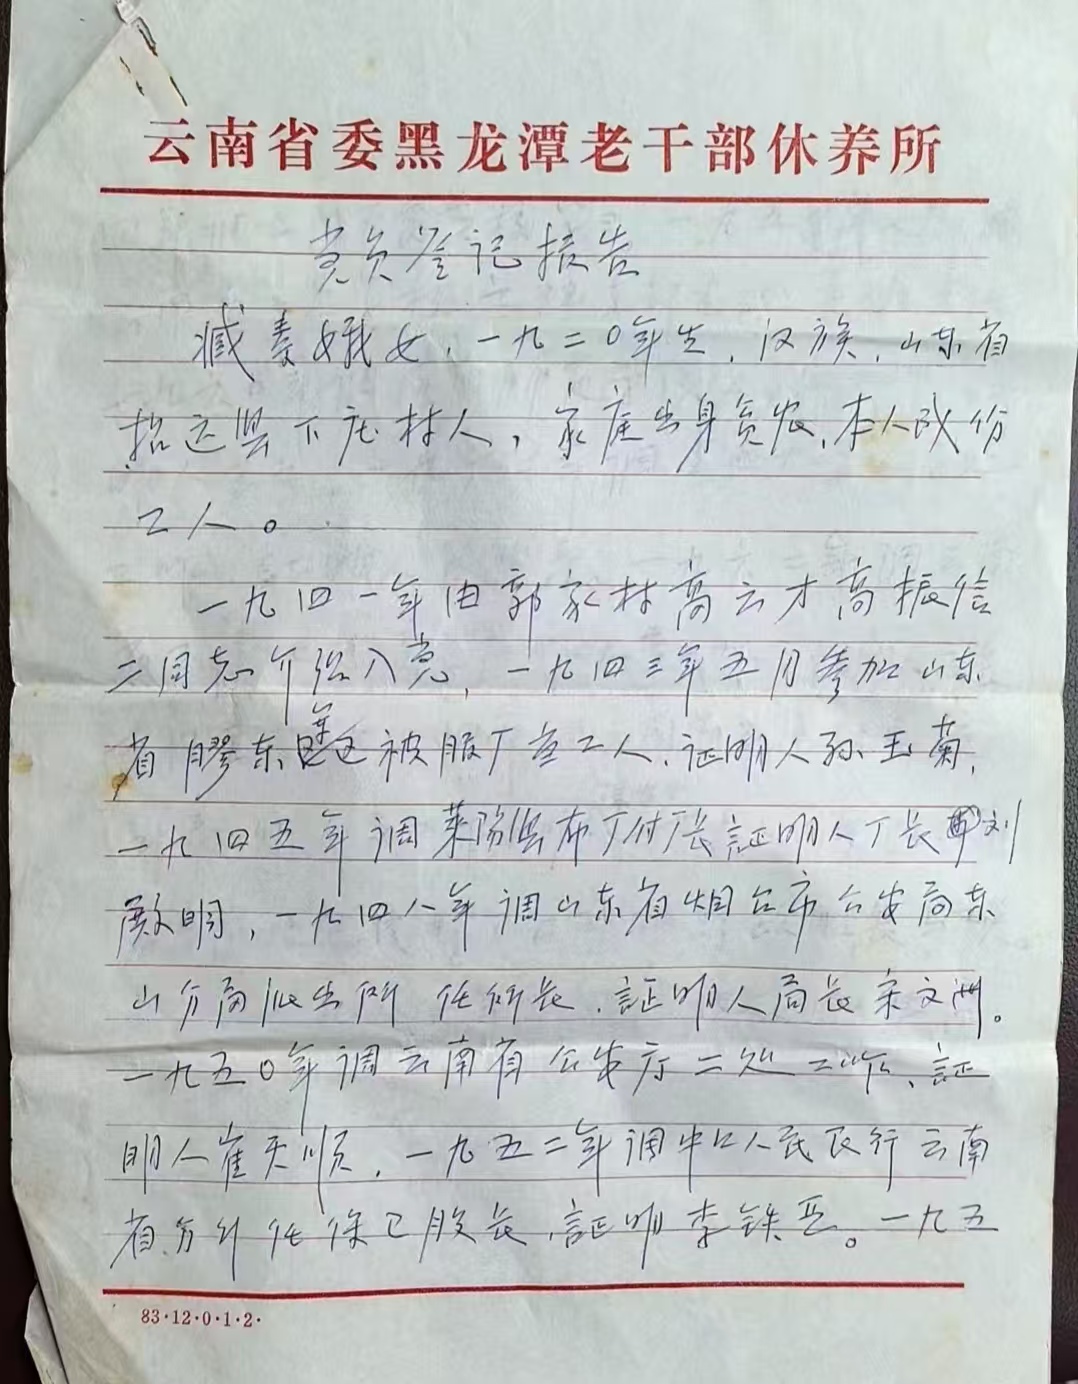 云南省委黑龙潭老干部休养所
党员登记报告
臧秦娥女，一九二〇年生，汉族，山东省
招远县下庄村人，家庭出身贫农，本人成份
工人。
一九四一年由郭家村高云才高振信
二同志介绍入党，一九四三年五月参加山东
省胶东军区被服厂当工人，证明人孙玉菊，
一九四五年调莱阳县布厂付厂长証明人厂长刘
敬明，一九四八年调山东省烟台市公安局东
山分局派出所任所长，証明人局长宋文洲。
一九五〇年调云南省公安厅二处工作、証
明人崔天顺，一九五二年调中口人民艮行云南
省分行任保卫股长，証明李铁亞。一九五
83·12·0·1·2·